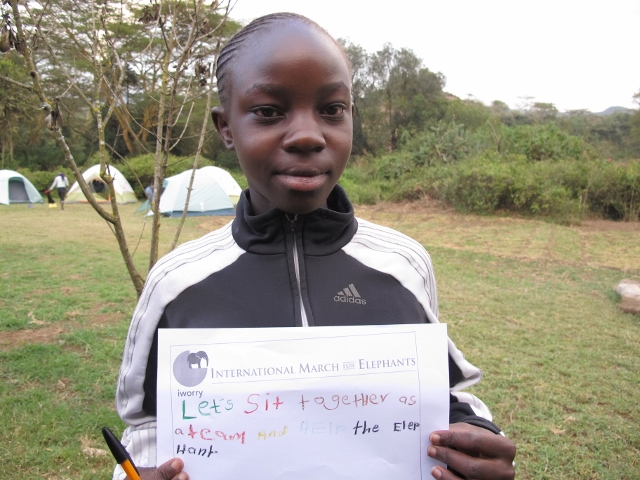 adidas
INTERNATIONAL MARCH FOR ELEPHANTS
iworry
Let's Sit together as
a team And HElp the Elep
Hant